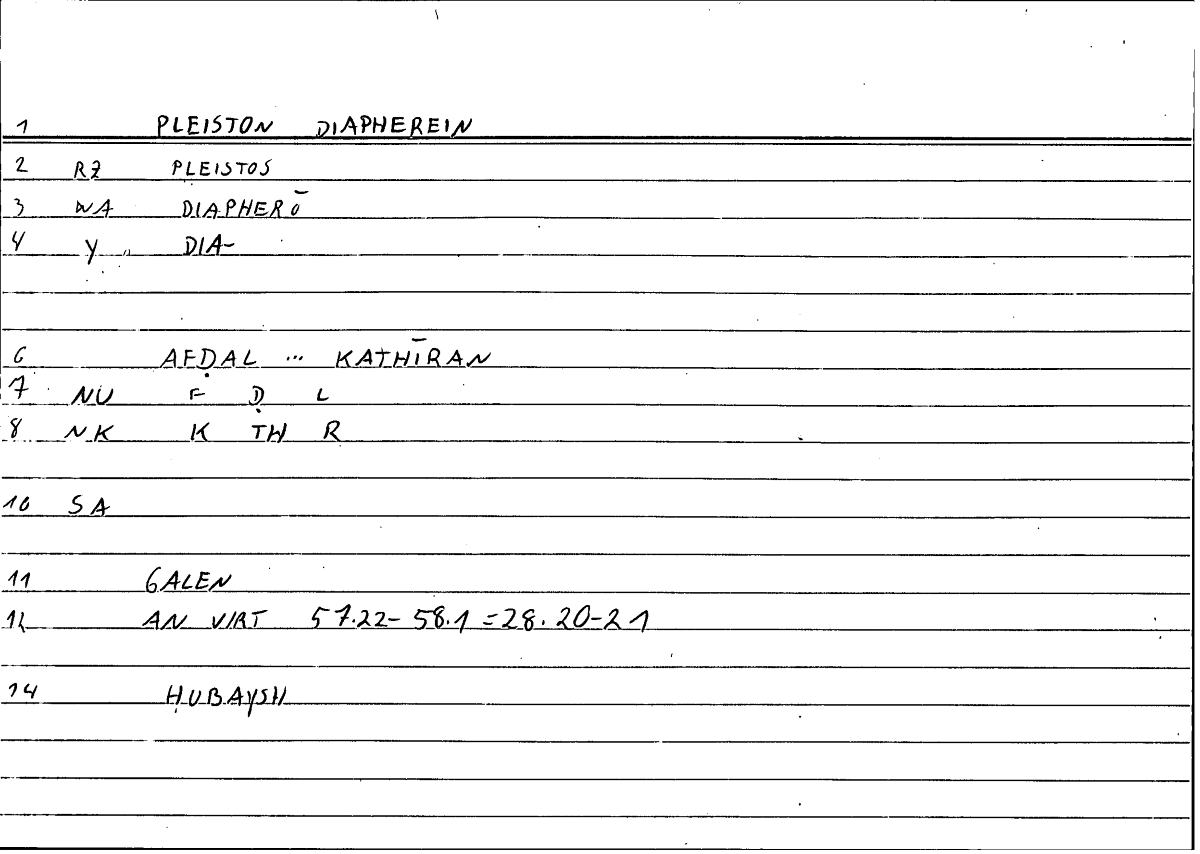 1 PLEISTON DIAPHEREIN
2 RZ PLEISTOS
3 WA DIAPHERŌ
4 Y DIA-
6 AFḌAL ... KATHĪRAN
7 NU F Ḍ L
8 NK K TH R
10 SA
11 GALEN
12 AN VIRT 57.22-58.1=28.20-21
14 ḤUBAYSH